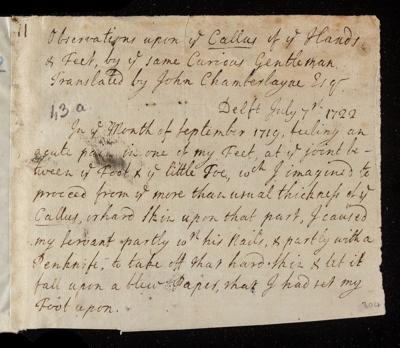 11
Observations upon yͤ Callus of yͤ Hands
& Feet, by yͤ same Curious Gentleman.
Translated by John Chamberlayne Esqʳ
43 a
Delft July 7ᵗʰ 1722
In yͤ Month of September 1719, feeling an
acute pain in one of my Feet, at yͤ joint be-
tween yͤ Foot & yͤ little Toe, wᶜʰ I imagined to
proceed from yͤ more than usual thickness of yͤ
Callus, or hard Skin upon that part, I caused
my servant partly wᵗʰ his Nails, & partly with a
Penknife, to take off that hard Skin & let it
fall upon a blew Paper, that I had set my
Foot upon.
304